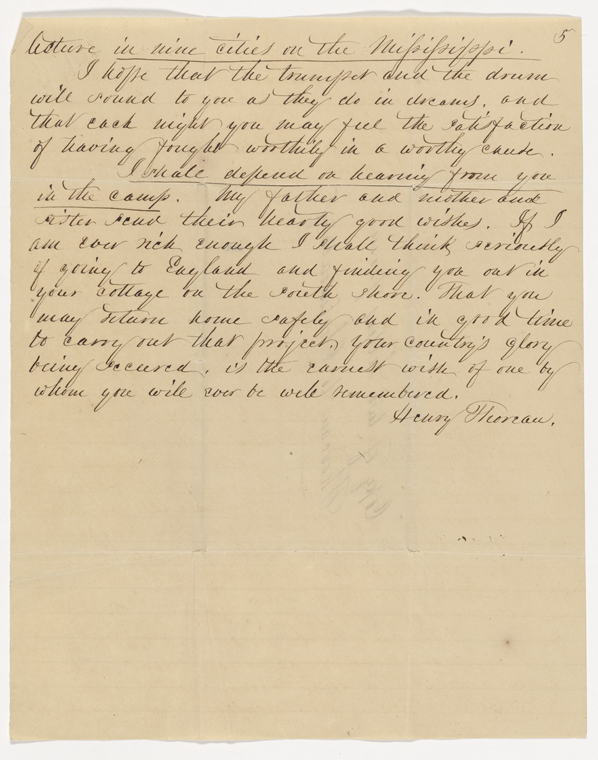 5
lecture in nine cities on the Mississippi.
I hope that the trumpet and the drum
will sound to you as they do in dreams, and
that each night you may feel the satisfaction
of having fought worthily in a worthy cause.
I shall depend on hearing from you
in the camp. My father and mother and
sister send their hearty good wishes. If I
am ever rich enough I shall think seriously
of going to England and finding you out in
your cottage on the south shore. That you
may return home safely and in good time
to carry out that project, your country's glory
being secured, is the earnest wish of one by
whom you will ever be well remembered.
Henry Thoreau.